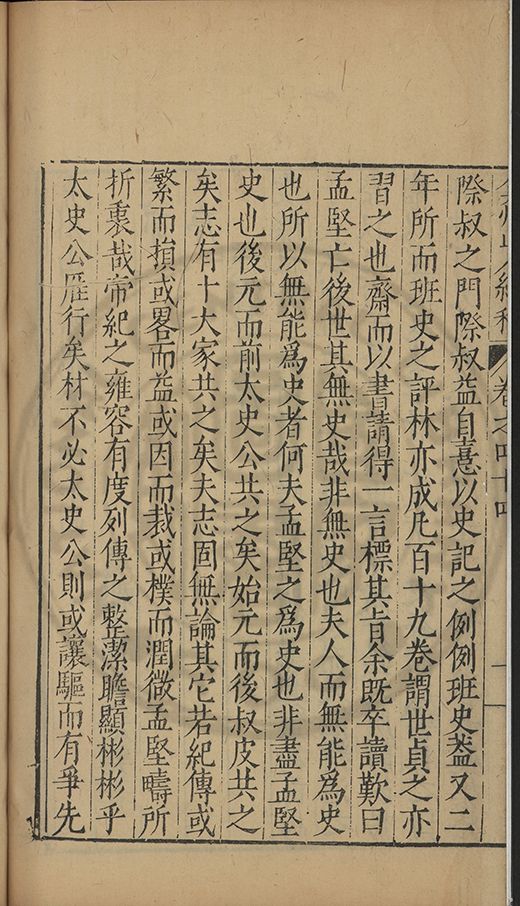 卷之四十四
際叔之門際叔益自憙以史記之例例班史葢又二
年所而班史之評林亦成凡百十九卷謂世貞之亦
習之也齋而以書請得一言標其旨余既卒讀歎曰
孟堅亡後世其無史哉非無史也夫人而無能爲史
也所以無能爲史者何夫孟堅之爲史也非盡孟堅
史也後元而前太史公共之矣始元而後叔皮共之
矣志有十大家共之矣夫志固無論其它若紀傳或
繁而損或畧而益或因而裁或樸而潤微孟堅疇所
折衷哉帝紀之雍容有度列傳之整潔贍顯彬彬乎
太史公鴈行矣材不必太史公則或讓驅而有爭先